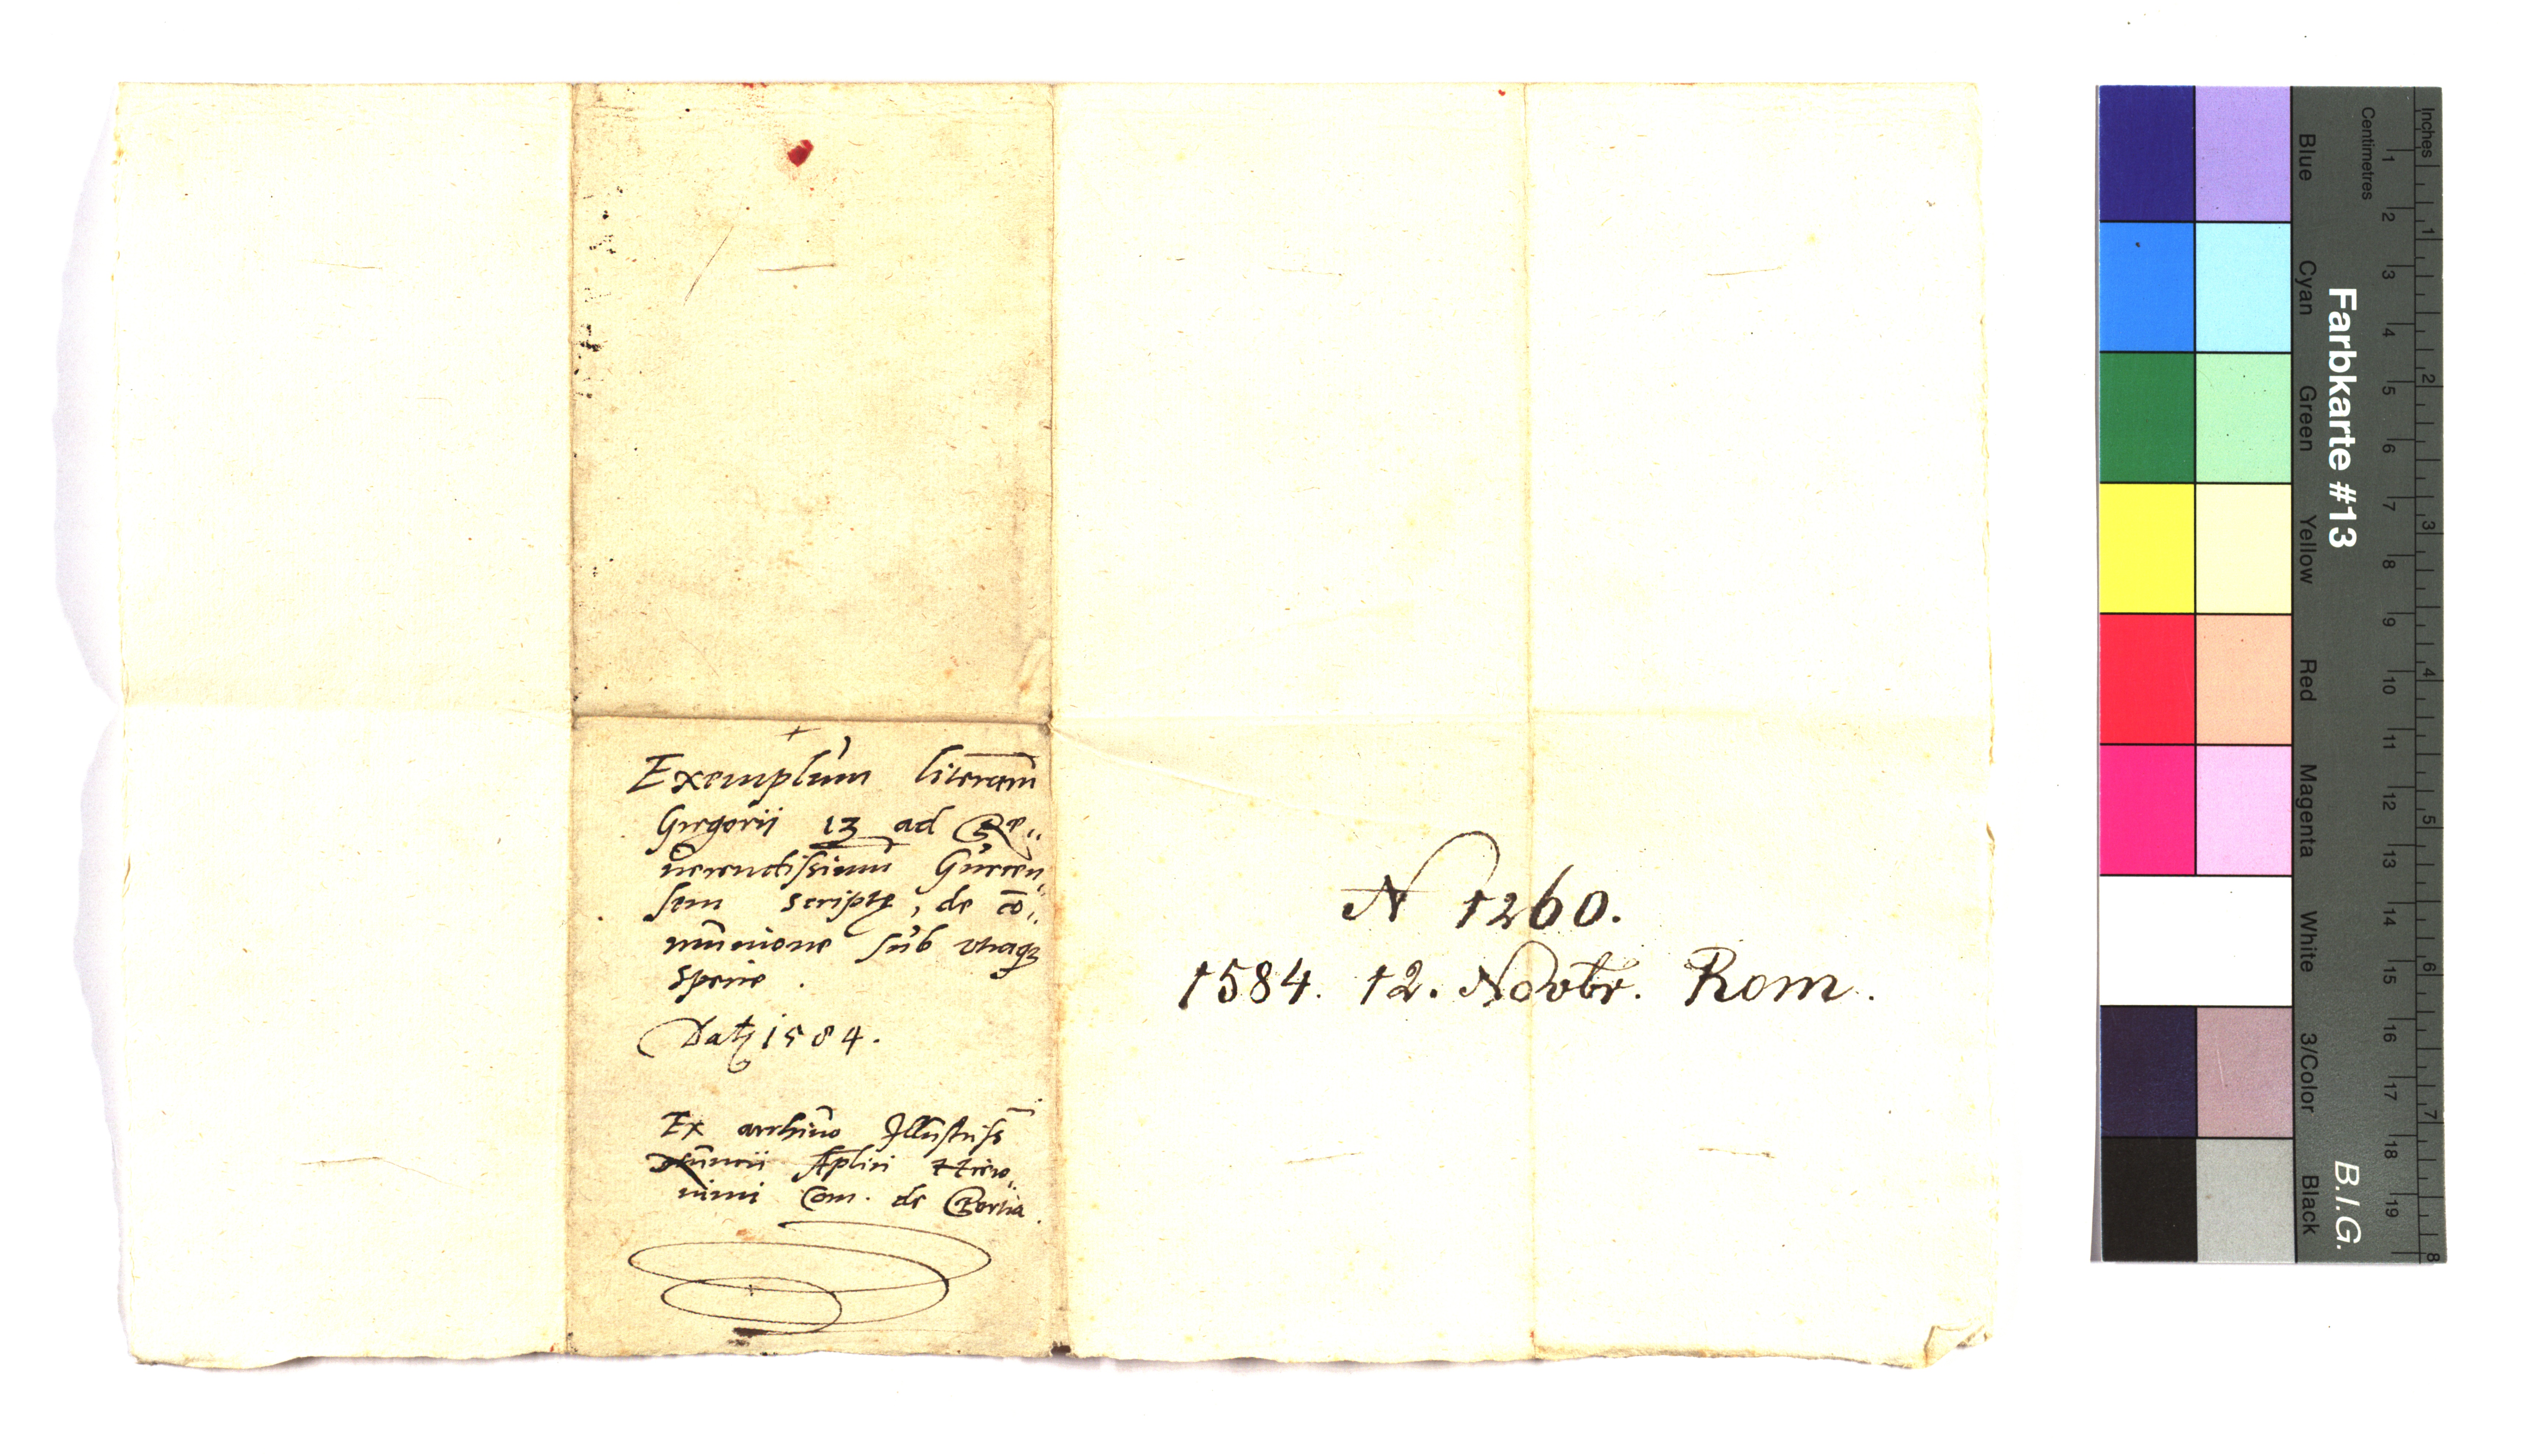 Exemplum literarum
Gregorii 13 ad Re„
uerendissimum Gurcen„
sem scriptȩ, de cō„
munione sub vtraq3
specie.
Datȩ 1584.
Ex archiuo Illustriss
Nuncii Aplici Hiero„
nimi Com. de Portia.
N 1260.
1584. 12. Novbr. Rom.
Inches
Centimetres
1 2 3 4 5 6 7 8 9 10 11 12 13 14 15 16 17 18 19
1 2 3 4 5 6 7 8
Farbkarte #13
B.I.G.
Blue
Cyan
Green
Yellow
Red
Magenta
White
3/Color
Black